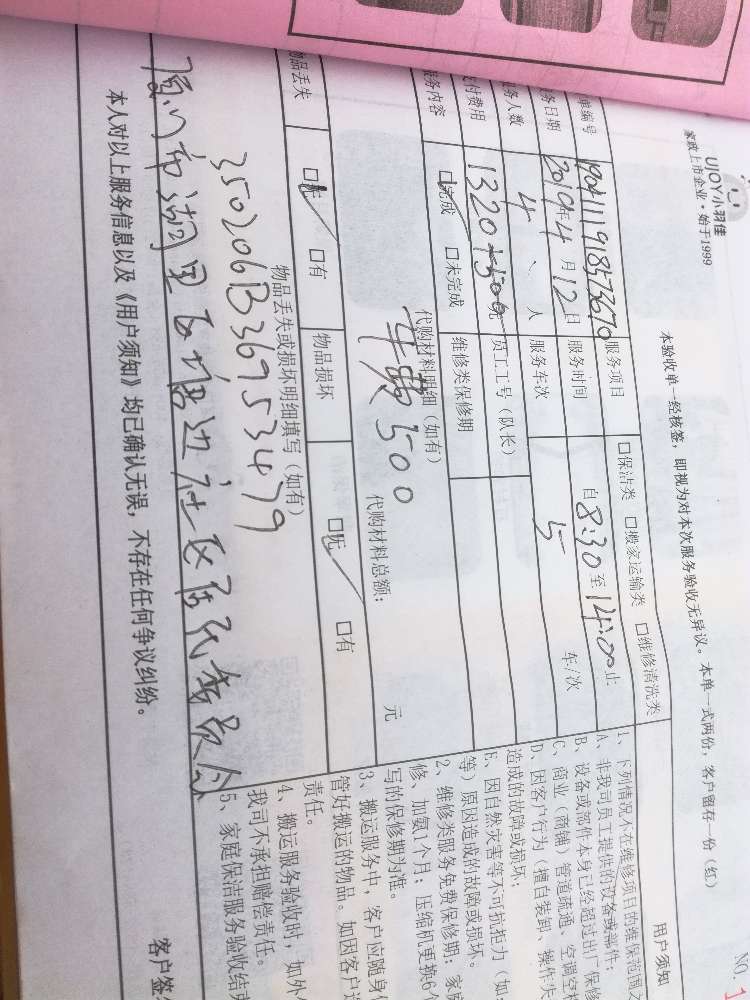 UJOY小羽佳
家政上市企业·始于1999
本验收单一经核签，即视为对本次服务验收无异议。本单一式两份，客户留存一份（红）
NO.
单编号 服务项目 □保洁类 □搬家运输类 □维修清洗类
务日期 2019年4月12日 服务时间 自8:30至14:00止
务人数 4、人 服务车次 5 车/次
付费用 1320+500元 员工工号（队长）
服务内容 □完成 □未完成 维修类保修期
代购材料明细（如有）
车费500
代购材料总额： 元
物品丢失 □无 □有 物品损坏 □无 □有
物品丢失或损坏明细填写（如有）
350206B36953479
厦门市湖里区塘边社区居民委员会
本人对以上服务信息以及《用户须知》均已确认无误，不存在任何争议纠纷。
客户签
用户须知
1、下列情况不在维修项目的维保范围之
A、非我司员工提供的设备或部件；
B、设备或部件本身已经超过出厂保修
C、商业（商铺）管道疏通、空调空
D、因客户行为（擅自装卸、操作失
造成的故障或损坏；
E、因自然灾害等不可抗拒力（如：
等）原因造成的故障或损坏。
2、维修类服务免费保修期：家
修、加氨1个月；压缩机更换6个
写的保修期为准。
3、搬运服务中，客户应随身
管好搬运的物品。如因客户
责任。
4、搬运服务验收时，如外
我司不承担赔偿责任。
5、家庭保洁服务验收结束